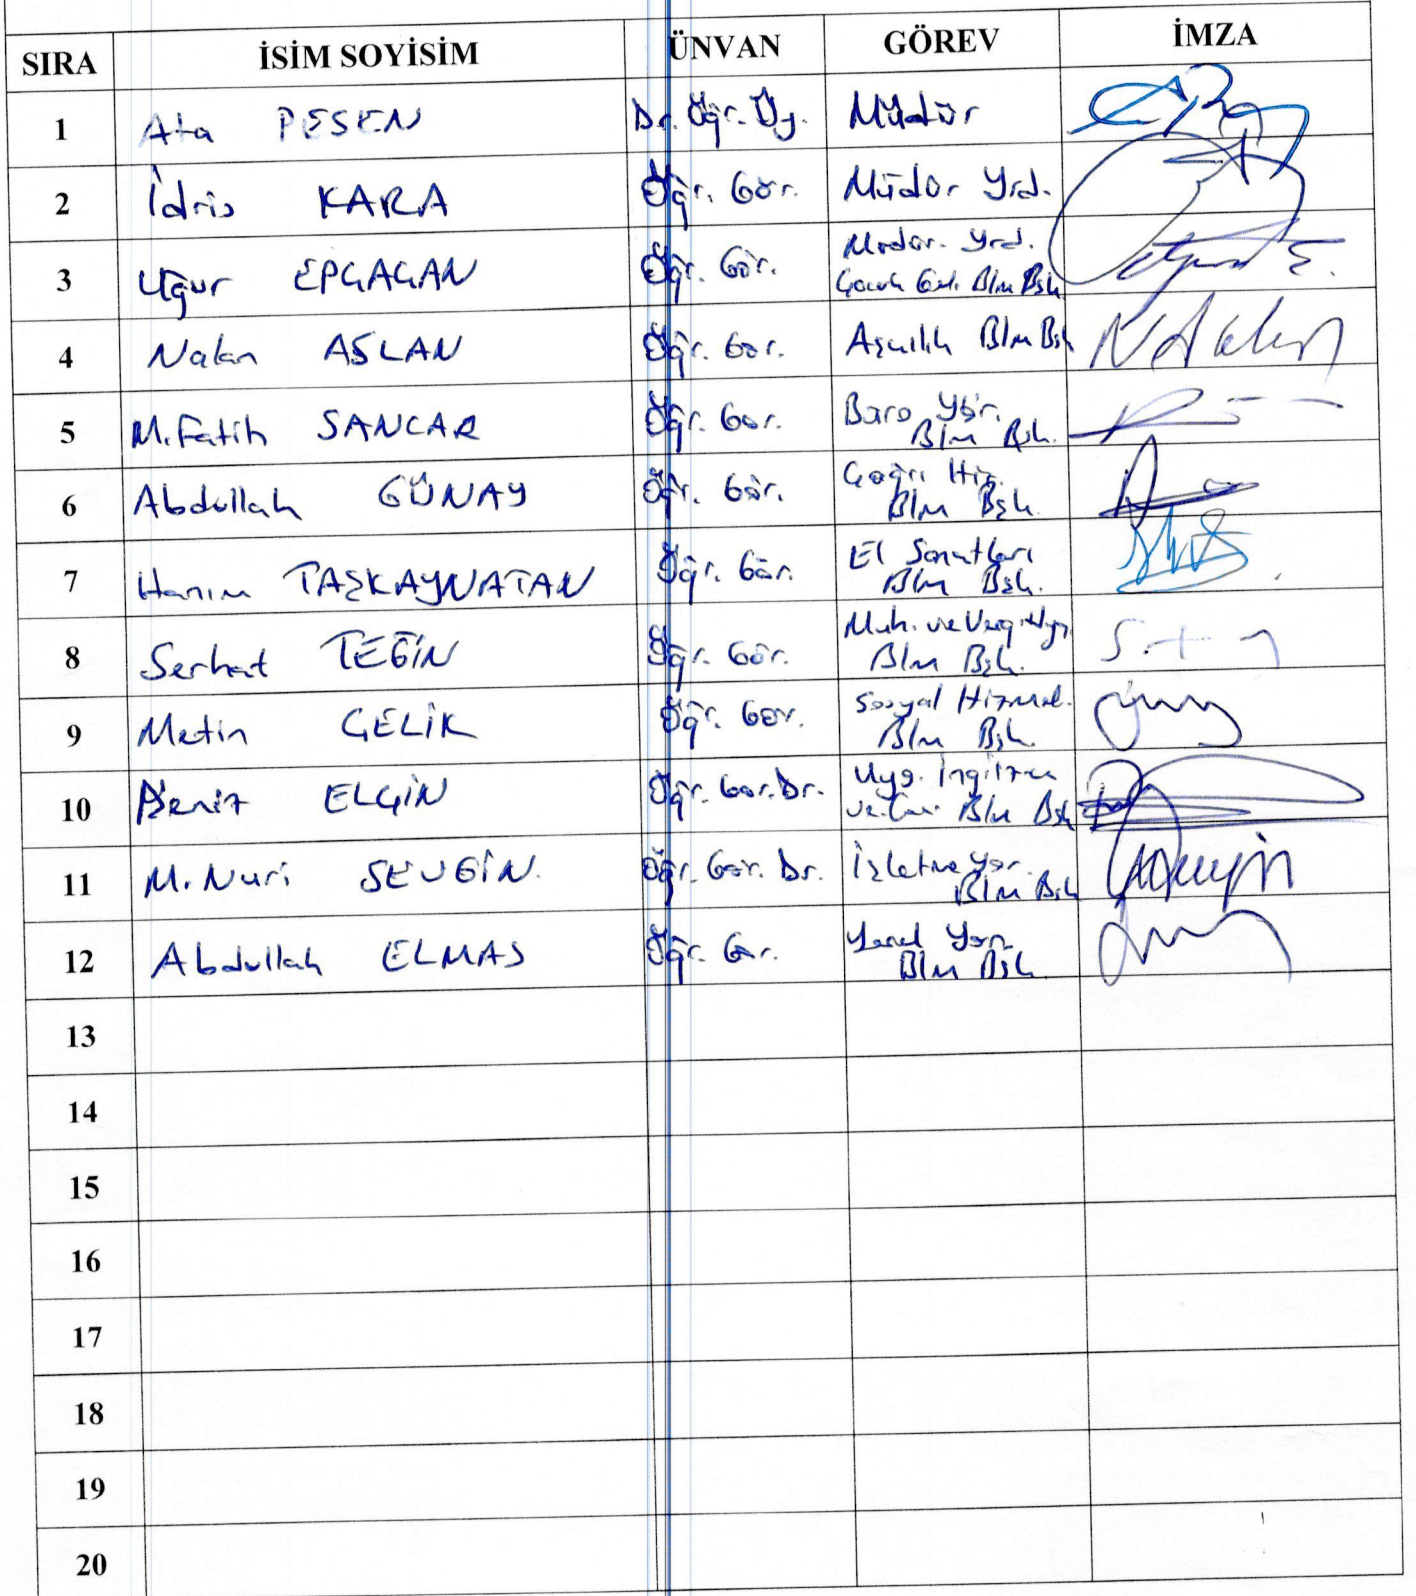 SIRA İSİM SOYİSİM ÜNVAN GÖREV İMZA
1 Ata PESEN Dr. Öğr. Üy. Müdür
2 İdris KARA Öğr. Gör. Müdür Yrd.
3 Uğur EPÇAÇAN Öğr. Gör. Müdür. Yrd.
Çocuk Gel. Blm Bşk
4 Nalan ASLAN Öğr. Gör. Aşçılık Blm Bşk
5 M.Fatih SANCAR Öğr. Gör. Büro Yör.
Blm Bşk.
6 Abdullah GÜNAY Öğr. Gör. Çağrı Hiz.
Blm Bşk.
7 Hanım TAŞKAYNATAN Öğr. Gör. El Sanatları
Blm Bşk.
8 Serhat TEĞİN Öğr. Gör. Muh. ve Vergi
Blm Bşk.
9 Metin ÇELİK Öğr. Gör. Sosyal Hizmet.
Blm Bşk.
10 Deniz ELÇİN Öğr. Gör. Dr. Uyg. İngilizce
Blm Bşk
11 M. Nuri SEVGİN. Öğr. Gör. Dr. İşletme Yön.
Blm Bşk
12 Abdullah ELMAS Öğr. Gör. Yerel Yön.
Blm Bşk
13
14
15
16
17
18
19
20